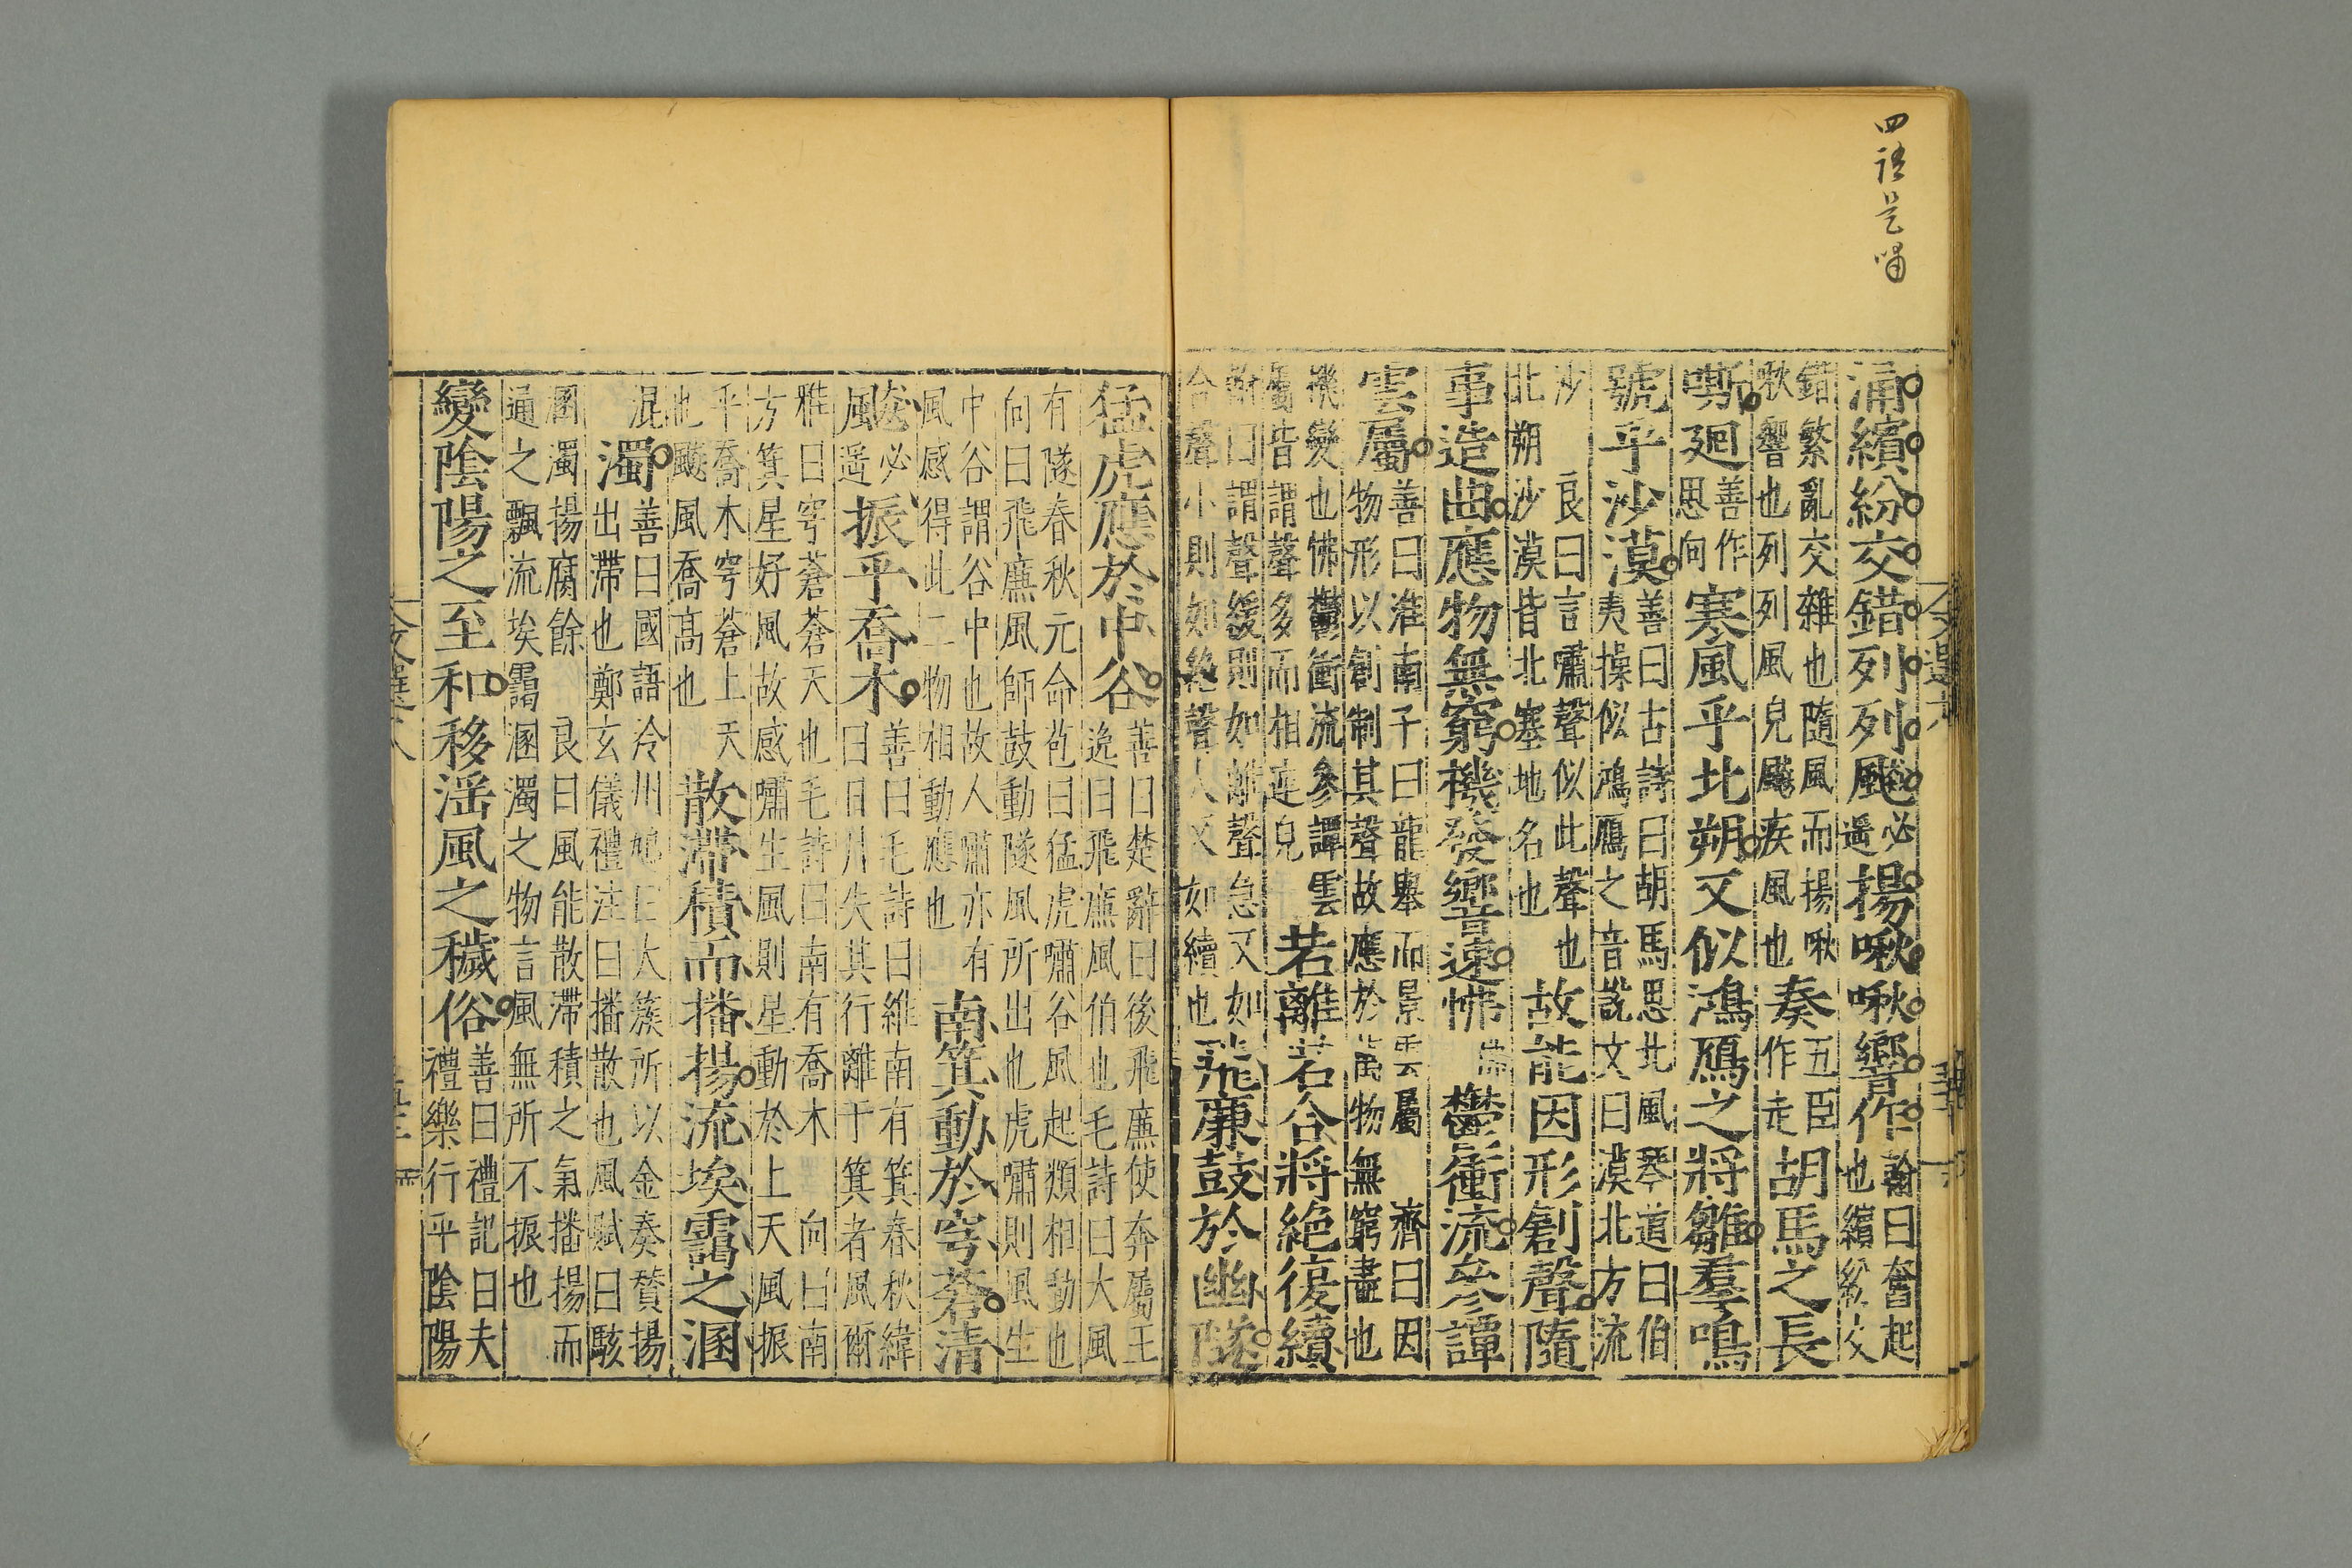 四語是嘯
涌繽紛交錯列列飈必遙揚啾啾響作翰曰奮起也繽紛交
錯繁亂交雜也隨風而揚啾啾響也列列風皃飈疾風也奏五臣作走胡馬之長
嘶廻善作思向寒風乎北朔又似鴻鴈之將雛羣鳴
號乎沙漠善曰古詩曰胡馬思北風琴道曰伯夷操似鴻鴈之音說文曰漠北方流
沙 良曰言嘯聲似此聲也北朔沙漠皆北塞地名也故能因形創聲隨
事造曲應物無窮機發響速怫鬱衝流參譚
雲屬善曰淮南子曰龍舉而景雲屬 濟曰因物形以創制其聲故應於萬物無窮盡也
機變也怫鬱衝流參譚雲屬皆謂聲多而相連皃若離若合將絶復續
曰謂聲緩則如離聲急又如合聲小則如絶聲人又如續也飛廉鼓於幽隧
文選十八
猛虎應於中谷善曰楚辭曰後飛廉使奔屬王逸曰飛廉風伯也毛詩曰大風
有隧春秋元命苞曰猛虎嘯谷風起類相動也向曰飛廉風師鼓動隧風所出也虎嘯則風生
中谷謂谷中也故人嘯亦有風感得此二物相動應也南箕動於穹蒼清
飈必遙振乎喬木善曰毛詩曰維南有箕春秋緯曰月失其行離于箕者風爾
雅曰穹蒼蒼天也毛詩曰南有喬木 向曰南方箕星好風故感嘯生風則星動於上天風振
乎喬木穹蒼上天也飈風喬高也散滯積而播揚流埃靄之溷
混濁善曰國語泠州鳩曰大簇所以金奏賛揚出滯也鄭玄儀禮注曰播散也風賦曰駭
溷濁揚腐餘 良曰風能散滯積之氣播揚而通之飄流埃靄溷濁之物言風無所不振也
變陰陽之至和移淫風之穢俗善曰禮記曰夫禮樂行乎陰陽